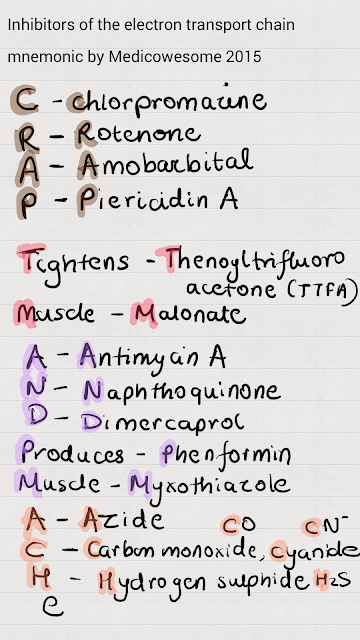 Inhibitors of the electron transport chain
mnemonic by Medicowesome 2015
C - chlorpromazine
R - Rotenone
A - Amobarbital
P - Piericidin A
Tightens - Thenoyltrifluoro
acetone (TTFA)
Muscle - Malonate
A - Antimycin A
N - Naphthoquinone
D - Dimercaprol
Produces - Phenformin
Muscle - Myxothiazole
A - Azide CO CN⁻
C - Carbon monoxide, Cyanide
H - Hydrogen sulphide H₂S
e